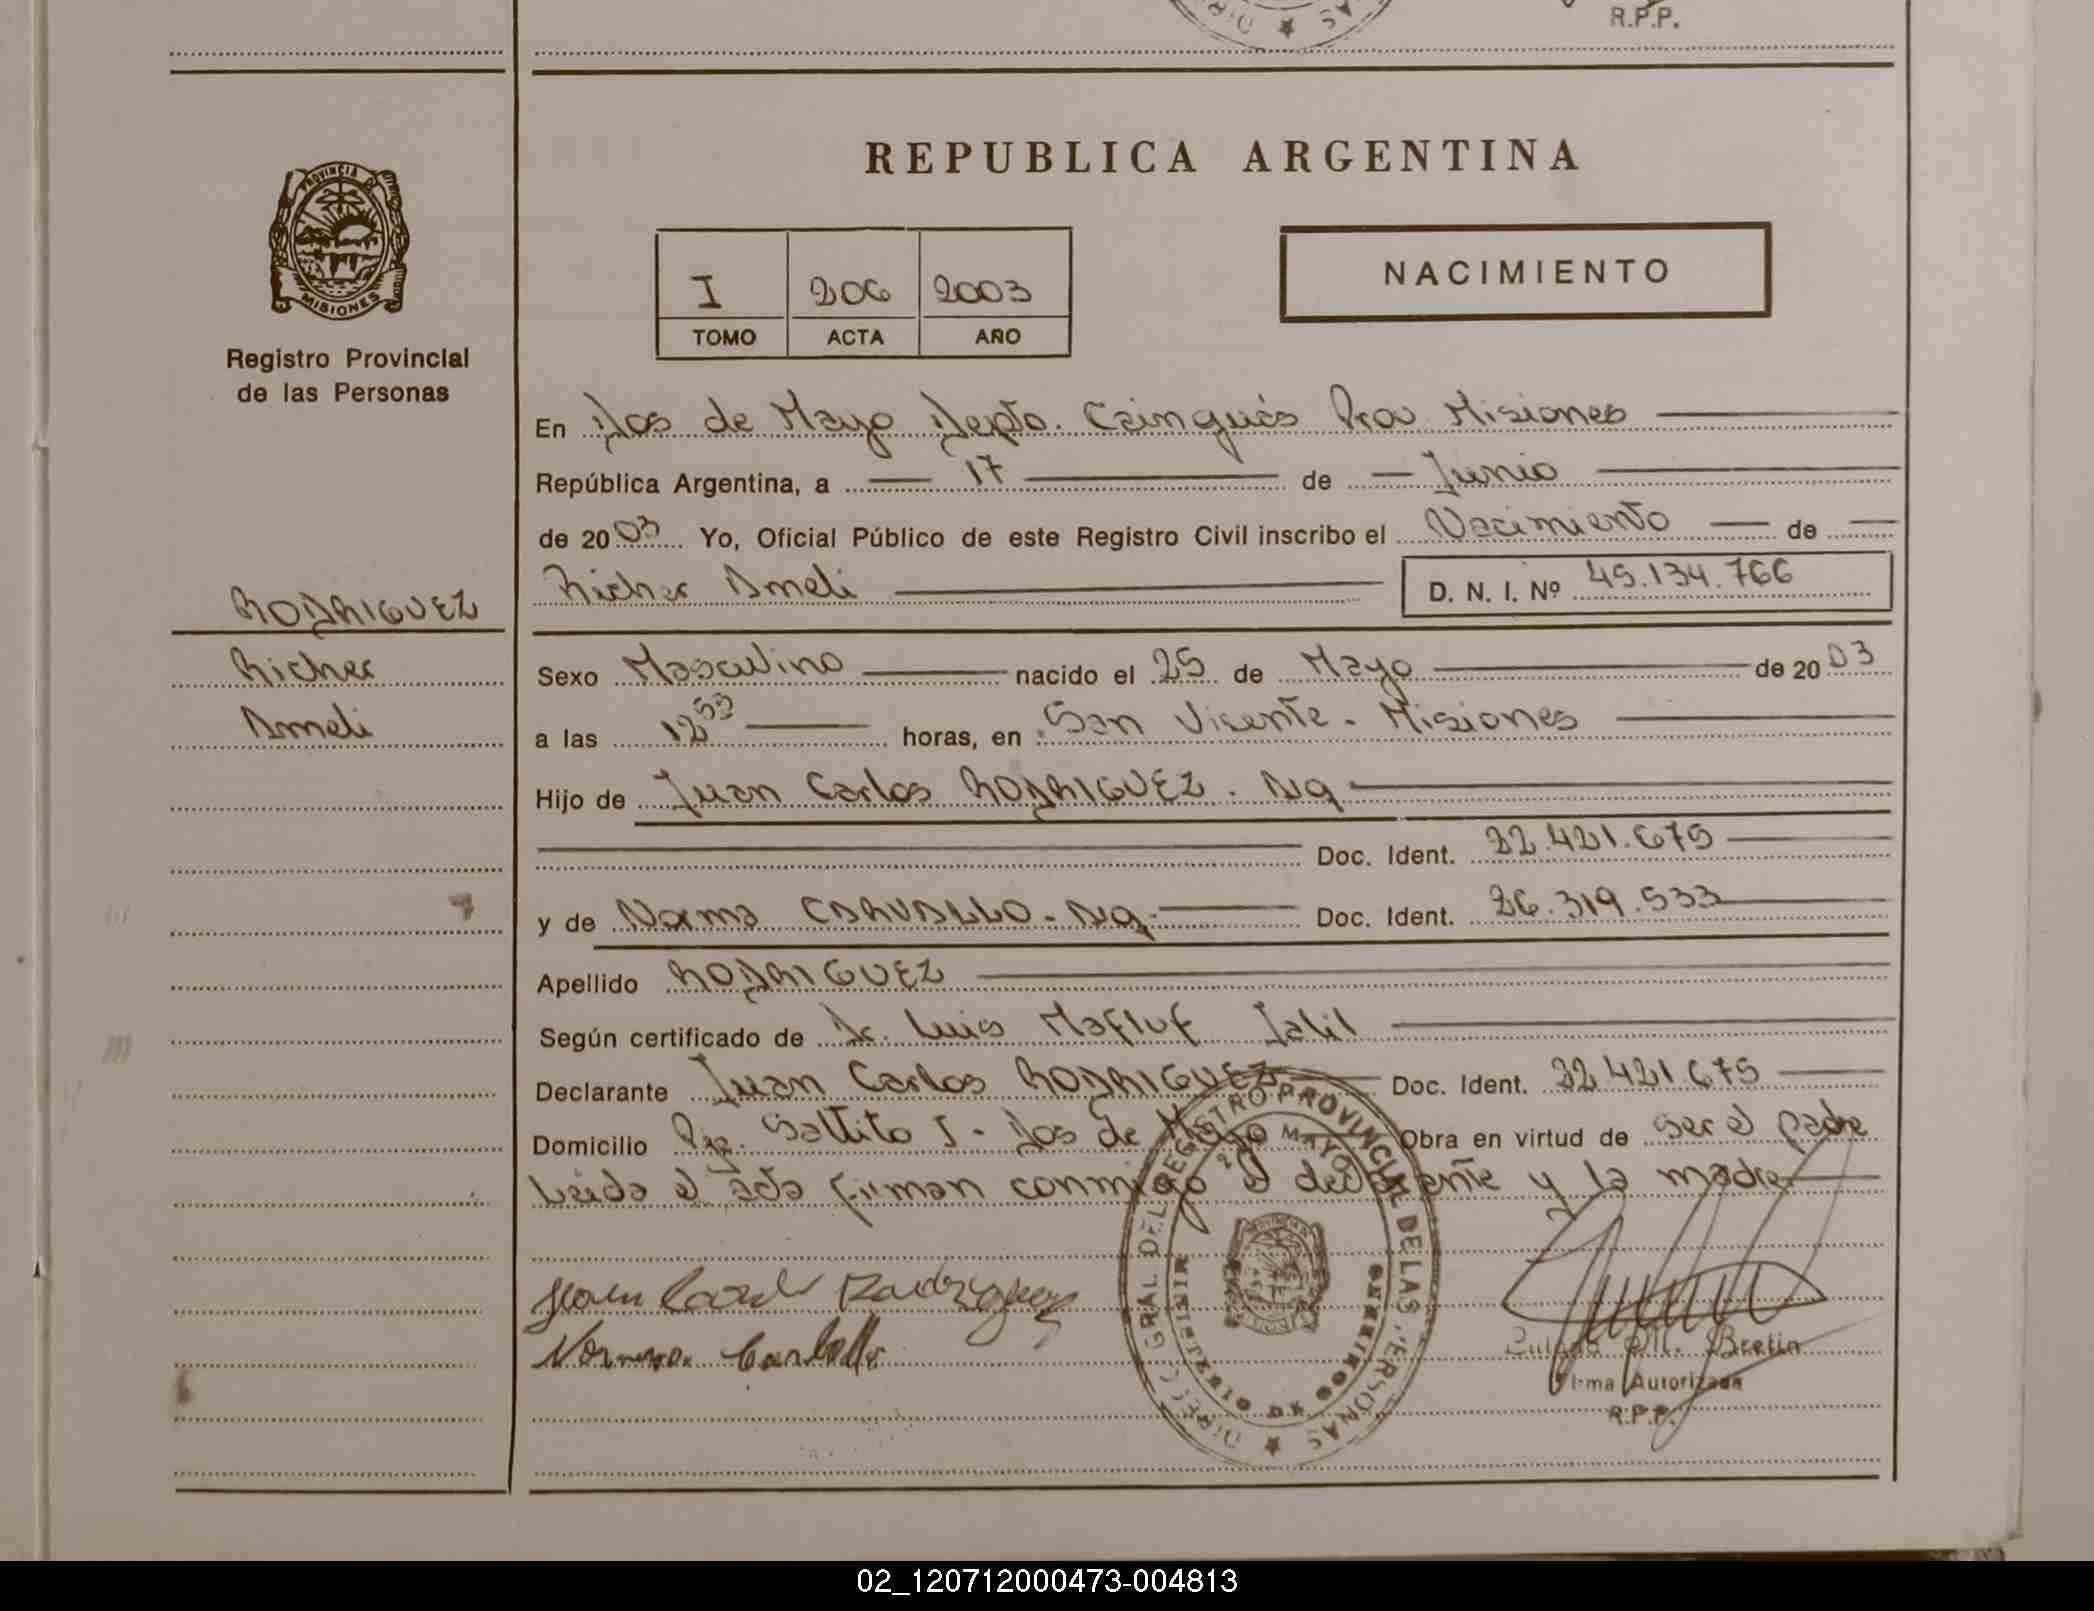 R.P.P.
PROVINCIA DE
MISIONES
Registro Provincial
de las Personas
REPUBLICA ARGENTINA
I 206 2003
TOMO ACTA AÑO
NACIMIENTO
En Dos de Mayo Depto. Cainguás Prov Misiones
República Argentina, a 17 de Junio
de 2003 Yo, Oficial Público de este Registro Civil inscribo el Nacimiento de
Richer Ameli D. N. I. Nº 45.134.766
RODRIGUEZ
Richer
Ameli
Sexo Masculino nacido el 25 de Mayo de 2003
a las 12 53 horas, en San Vicente - Misiones
Hijo de Juan Carlos RODRIGUEZ - Arg
Doc. Ident. 22.421.675
y de Norma CARVALLO - Arg. Doc. Ident. 26.319.533
Apellido RODRIGUEZ
Según certificado de Dr. Luis Mafluf Jalil
Declarante Juan Carlos RODRIGUEZ Doc. Ident. 22.421.675
Domicilio Pje. Saltito I - Dos de Mayo Obra en virtud de ser el padre
Leida el acta firman conmigo el declarante y la madre
DIRECC. GRAL. DEL REGISTRO PROVINCIAL DE LAS PERSONAS
2 MAYO
Juan Carlos Rodriguez
Norma Carballo
Bretin
Firma Autorizada
R.P.P.
02_120712000473-004813